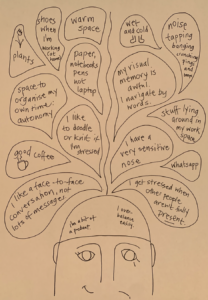 plants
shoes
when I'm
working
(at home)
warm space
wet
and cold
noise
tapping
banging
paper,
notebooks
pens
not
laptop
my visual
memory is
awful.
I navigate by
words.
space to
organise my
own time.
autonomy
I like
to doodle
or knit if
I'm
stressed
stuff lying
around in
my work
space
good coffee
I have a
very sensitive
nose.
whatsapp
I like a face-to-face
conversation, not
lots of messages
I get stressed when
other people
aren't fully
present.
I'm a bit of
a
I over-
balance
easily.